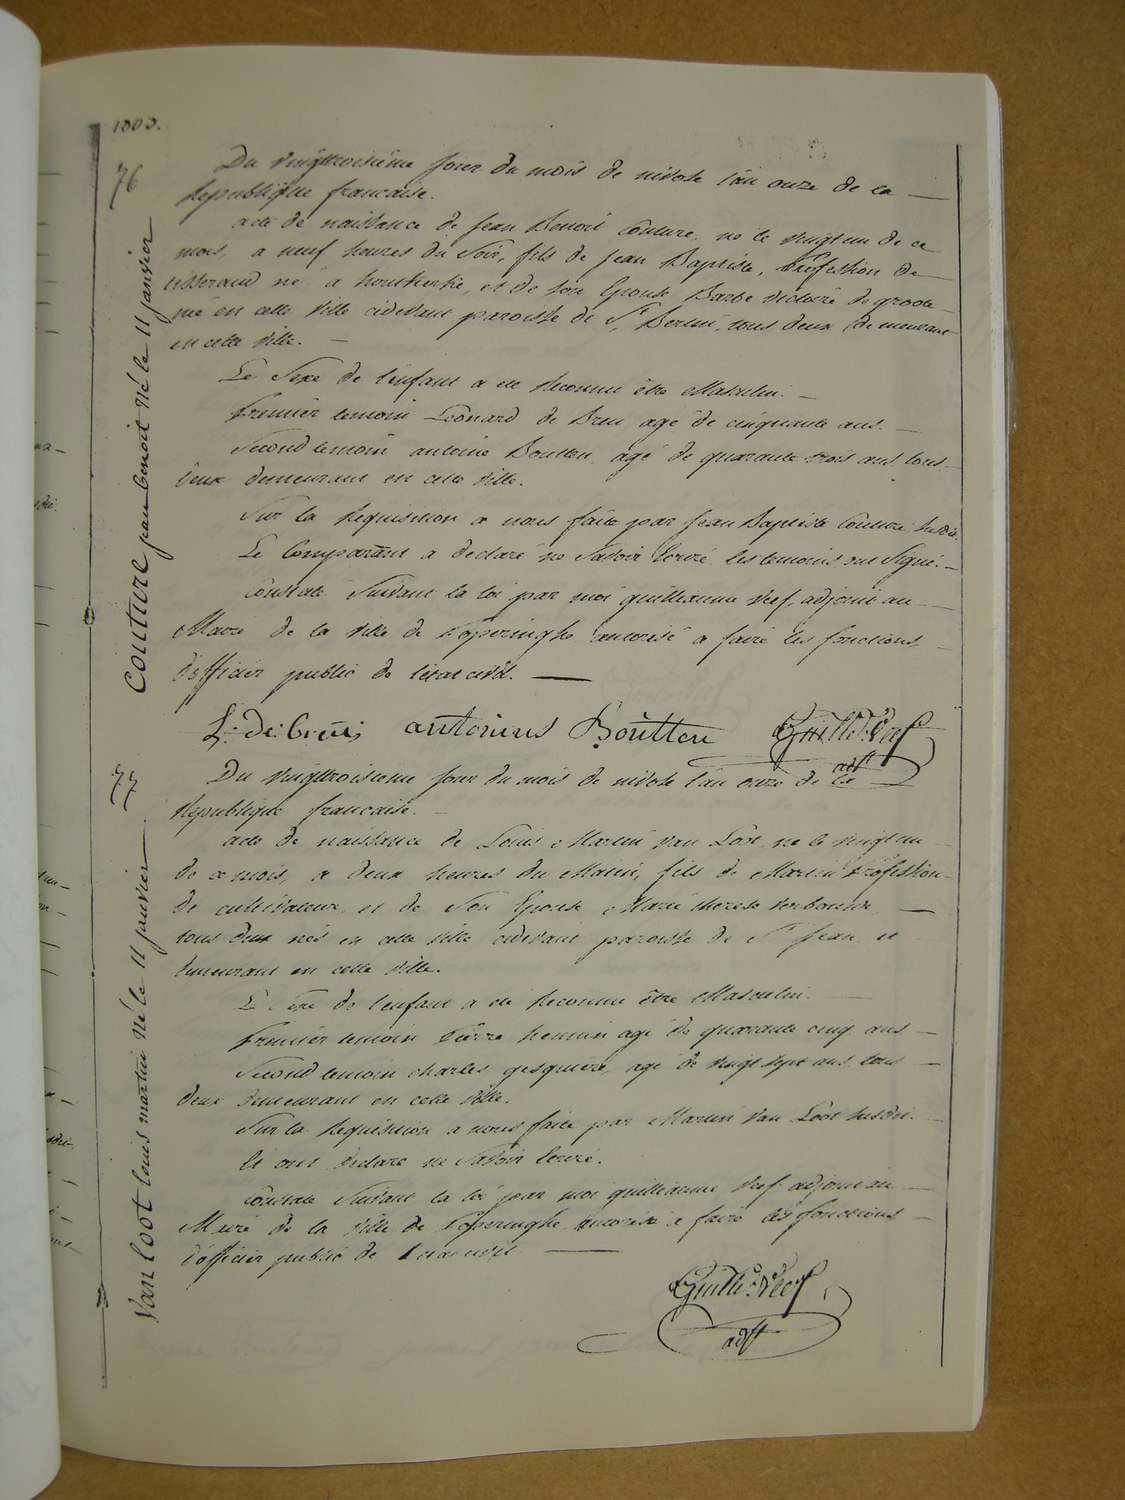 1803.
76
Couture jean benoit Né le 11 janvier
Du vingttroisième jour du mois de nivose l'an onze de la
Republique francaise.
acte de naissance de Jean Benoit Couture, né le vingt un de ce
mois, a neuf heures du Soir, fils de Jean Baptiste, Profession de
tisserand né a houtkerke, et de Son Epouse Barbe victoire de groote
née en cette Ville cidevant paroisse de St Bertin, tous deux demeurant
en cette Ville.
Le Sexe de l'enfant a été Reconnu être Masculin.
Premier temoin Léonard de Breu agé de cinquante ans.
Second temoin antoine Boutten, agé de quarante trois ans, tous
deux demeurant en cette Ville.
Sur la Requisition a nous faite par Jean Baptiste Couture Susdit.
Le Comparant a declaré ne Savoir Ecrire, les temoins ont Signé.
Constaté Suivant la loi par moi guillaume Veef, adjoint au
Maire de la Ville de Poperinghe autorisé a faire les fonctions
d'officier public de l'état civil.
L: de: breü; antonius Boutten Guille: Veef
adjt
77
Van loot louis martin Né le 11 janvier
Du vingttroisieme jour du mois de nivose l'an onze de la
Republique francaise.
acte de naissance de Louis Martin Van Loot, né le vingt un
de ce mois, a deux heures du Matin, fils de Martin Profession
de cultivateur, et de Son Epouse Marie therese
tous deux nés en cette Ville cidevant paroisse de St Jean et
demeurant en cette Ville.
Le Sexe de l'enfant a été Reconnu être Masculin.
Premier temoin Pierre hennin agé de quarante cinq ans
Second temoin charles gesquiere, agé de vingt Sept ans, tous
deux demeurant en cette Ville.
Sur la Requisition a nous faite par Martin Van Loot Susdit.
Ils ont declaré ne Savoir Ecrire.
Constaté Suivant la loi par moi guillaume Veef adjoint au
Maire de la Ville de Poperinghe autorisé a faire les fonctions
d'officier public de l'état civil
Guille: Veef
adjt